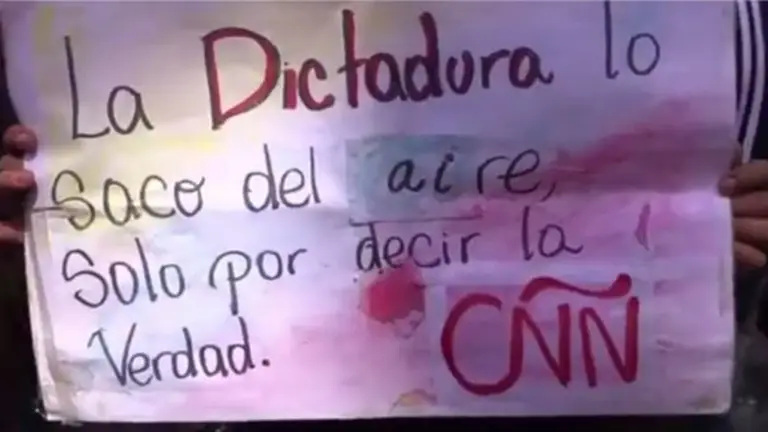 La Dictadura lo
saco del aire,
Solo por decir la
Verdad. CÑÑ